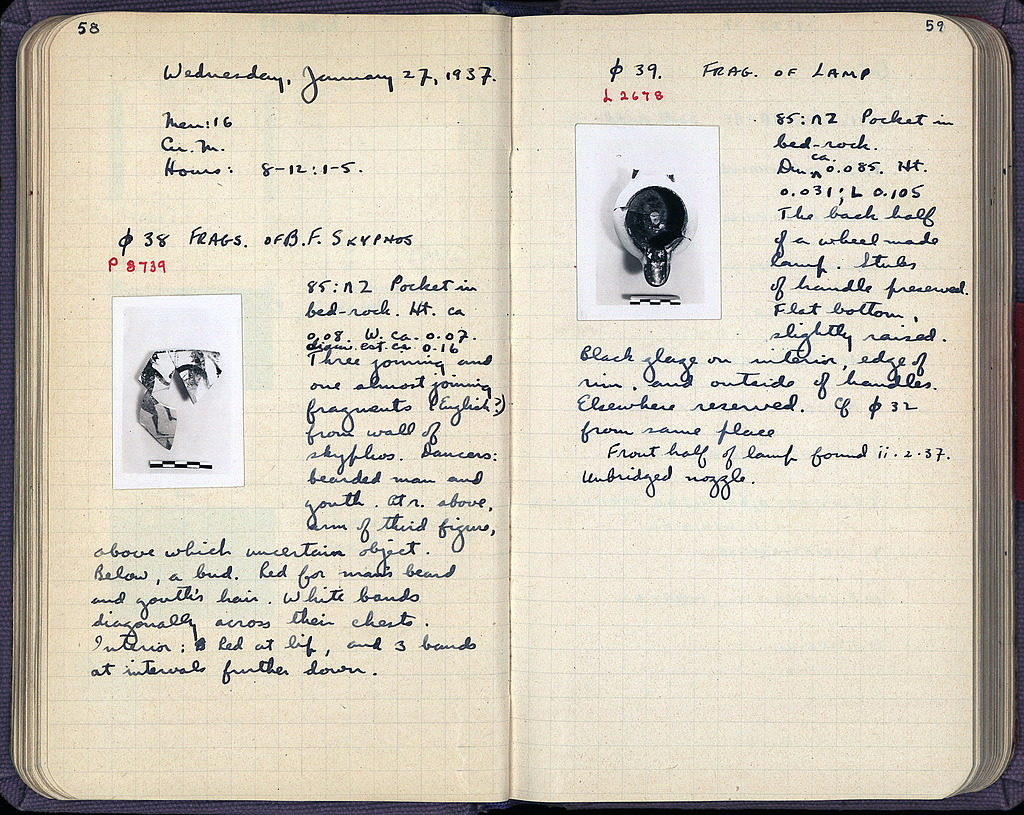 58
Wednesday, January 27, 1937.
Men: 16
Cu. M.
Hours: 8-12:1-5.
φ 38 FRAGS. OF B.F. SKYPHOS
P 8739
85: ΛΖ Pocket in
bed-rock. Ht. ca
0.08. W. ca. 0.07.
diam. est. ca 0.16
Three joining and
one almost joining
fragments (English?)
from wall of
skyphos. Dancers:
bearded man and
youth. At r. above,
arm of third figure,
above which uncertain object.
Below, a bud. Red for man's beard
and youth's hair. White bands
diagonally across their chests.
Interior: Red at lip, and 3 bands
at intervals further down.
59
φ 39. FRAG. OF LAMP
L 2678
85: ΛΖ Pocket in
bed-rock.
Dim. ca. 0.085. Ht.
0.031; L 0.105
The back half
of a wheel made
lamp. Stubs
of handle preserved.
Flat bottom,
slightly raised.
Black glaze on interior, edge of
rim, and outside of handles.
Elsewhere reserved. Cf φ 32
from same place
Front half of lamp found ii.2.37.
Unbridged nozzle.